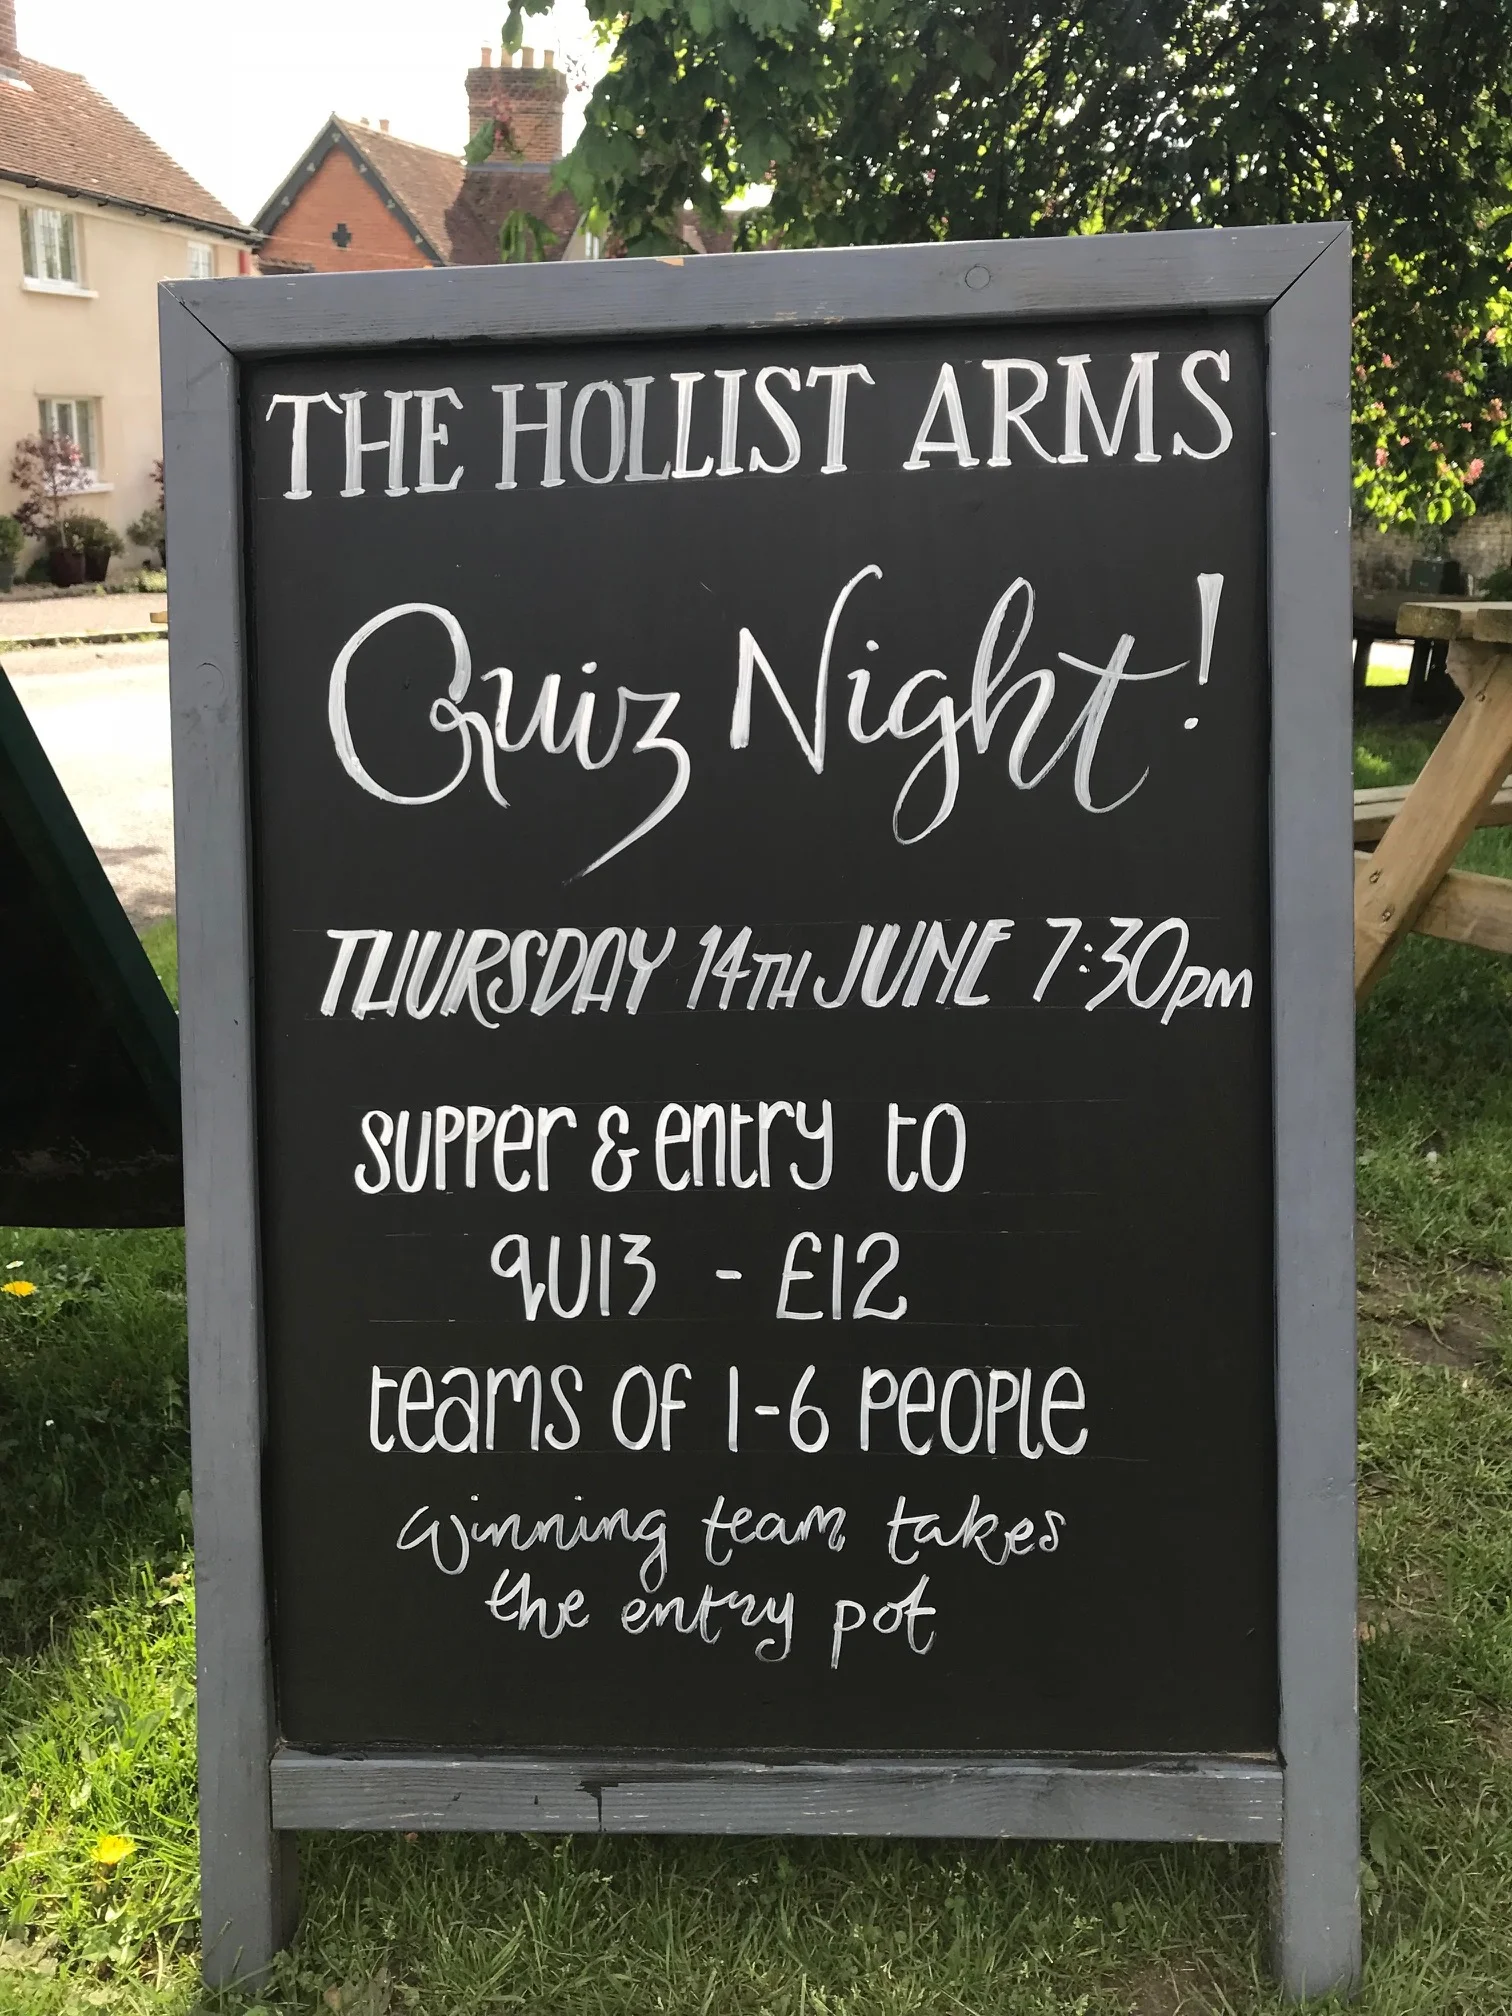 THE HOLLIST ARMS
Quiz Night!
THURSDAY 14TH JUNE 7:30pm
supper & entry to
quiz - £12
teams of 1-6 people
winning team takes
the entry pot